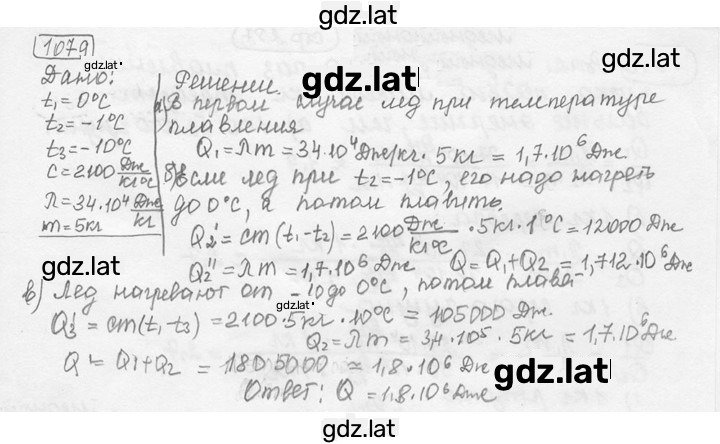 gdz.lat
1079
gdz.lat
Дано:
t₁=0°C
t₂=-1°C
t₃=-10°C
C=2100 Дж/кг°C
λ=34·10⁴ Дж/кг
m=5кг
gdz.lat
Решении.
gdz.lat
а) В первом случае лед при температуре
плавления
Q₁=λm=34·10⁴Дж/кг·5кг=1,7·10⁶Дж.
б) Если лед при t₂=-1°C, его надо нагреть
до 0°C, а потом плавить.
Q₂'=cm(t₁-t₂)=2100 Дж/кг°C ·5кг·1°C=12000 Дж
Q₂''=λm=1,7·10⁶Дж Q=Q₁+Q₂=1,712·10⁶Дж
в) Лед нагревают от -10 до 0°C, потом плава-
gdz.lat
Q₃'=cm(t₁-t₃)=2100·5кг·10°C=105000 Дж.
Q₂=λm=3,4·10⁵·5кг=1,7·10⁶Дж
Q=Q₁+Q₂=1805000≈1,8·10⁶Дж
gdz.lat
Ответ: Q=1,8·10⁶Дж
gdz.lat